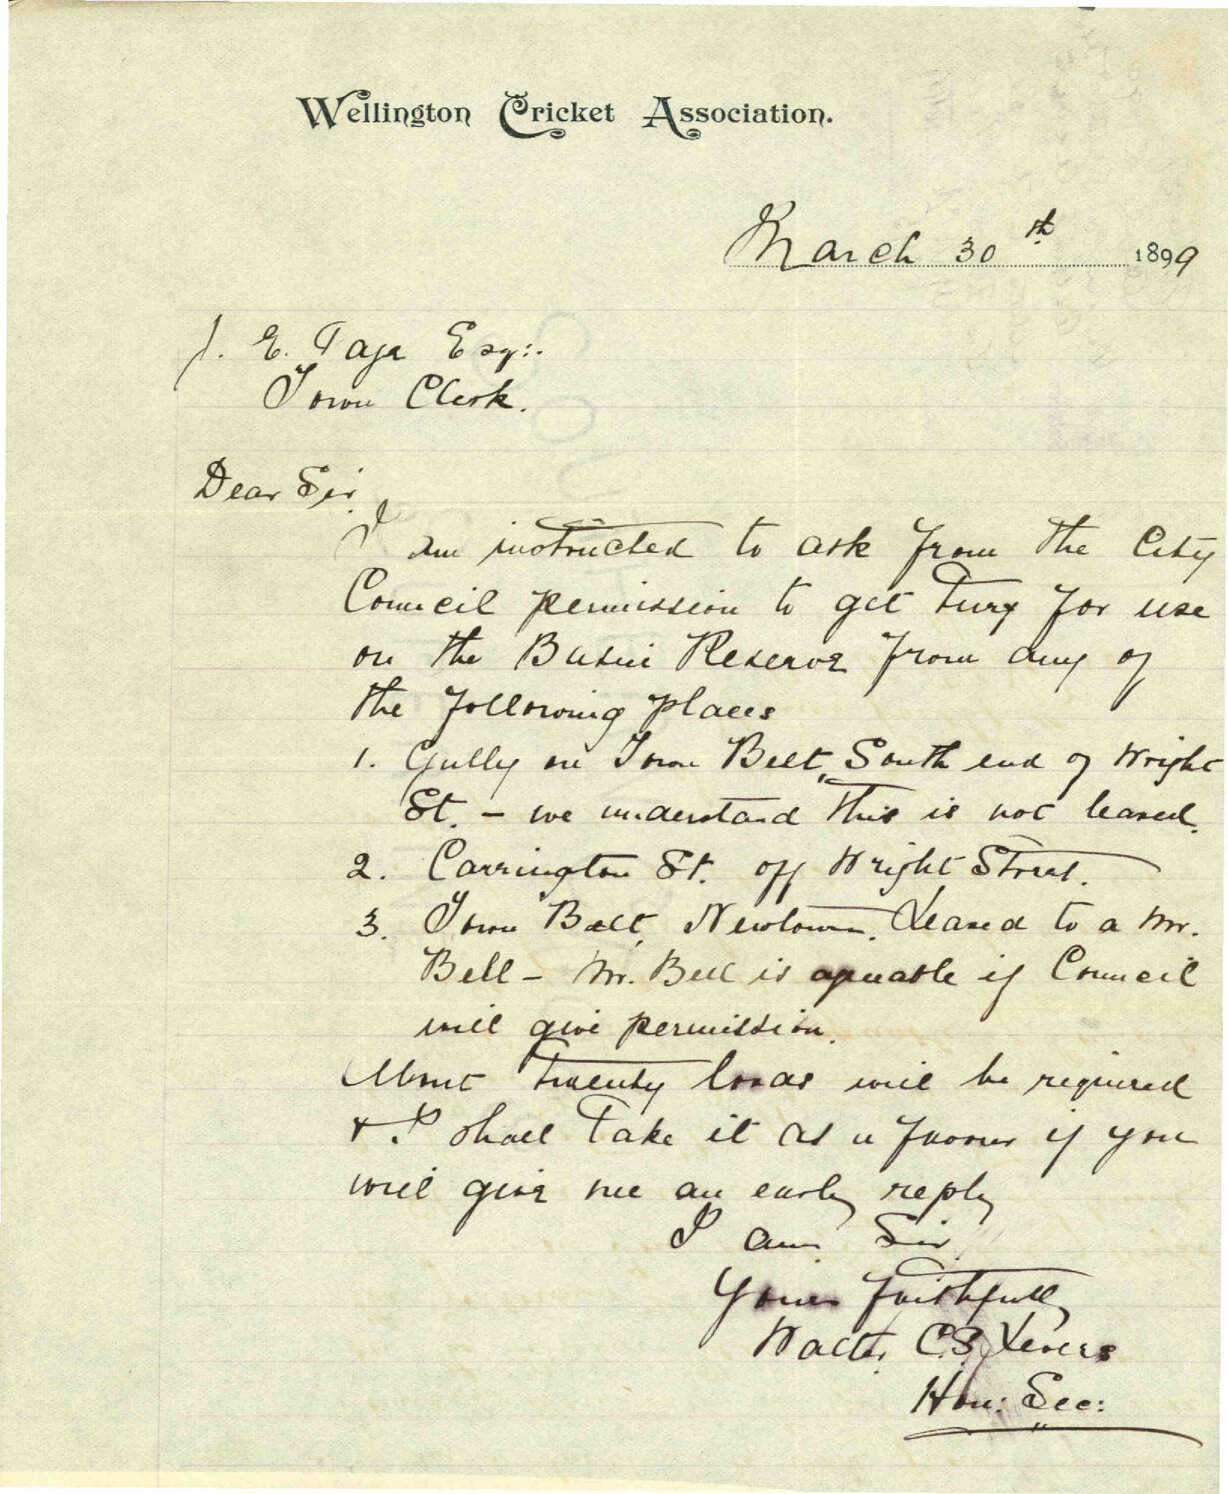 Wellington Cricket Association.
March 30th 1899
J. E. Page Esq:.
Town Clerk.
Dear Sir
I am instructed to ask from the City
Council permission to get turf for use
on the Basin Reserve from any of
the following places
1. Gully on Town Belt, South end of Wright
St. - we understand this is not leased.
2. Carrington St. off Wright Street.
3. Town Belt, Newtown. Leased to a Mr.
Bell - Mr. Bell is agreeable if Council
will give permission.
About twenty loads will be required
& I shall take it as a favour if you
will give me an early reply
I am Sir
Yours faithfully
Walter C.S.
Hon: Sec: